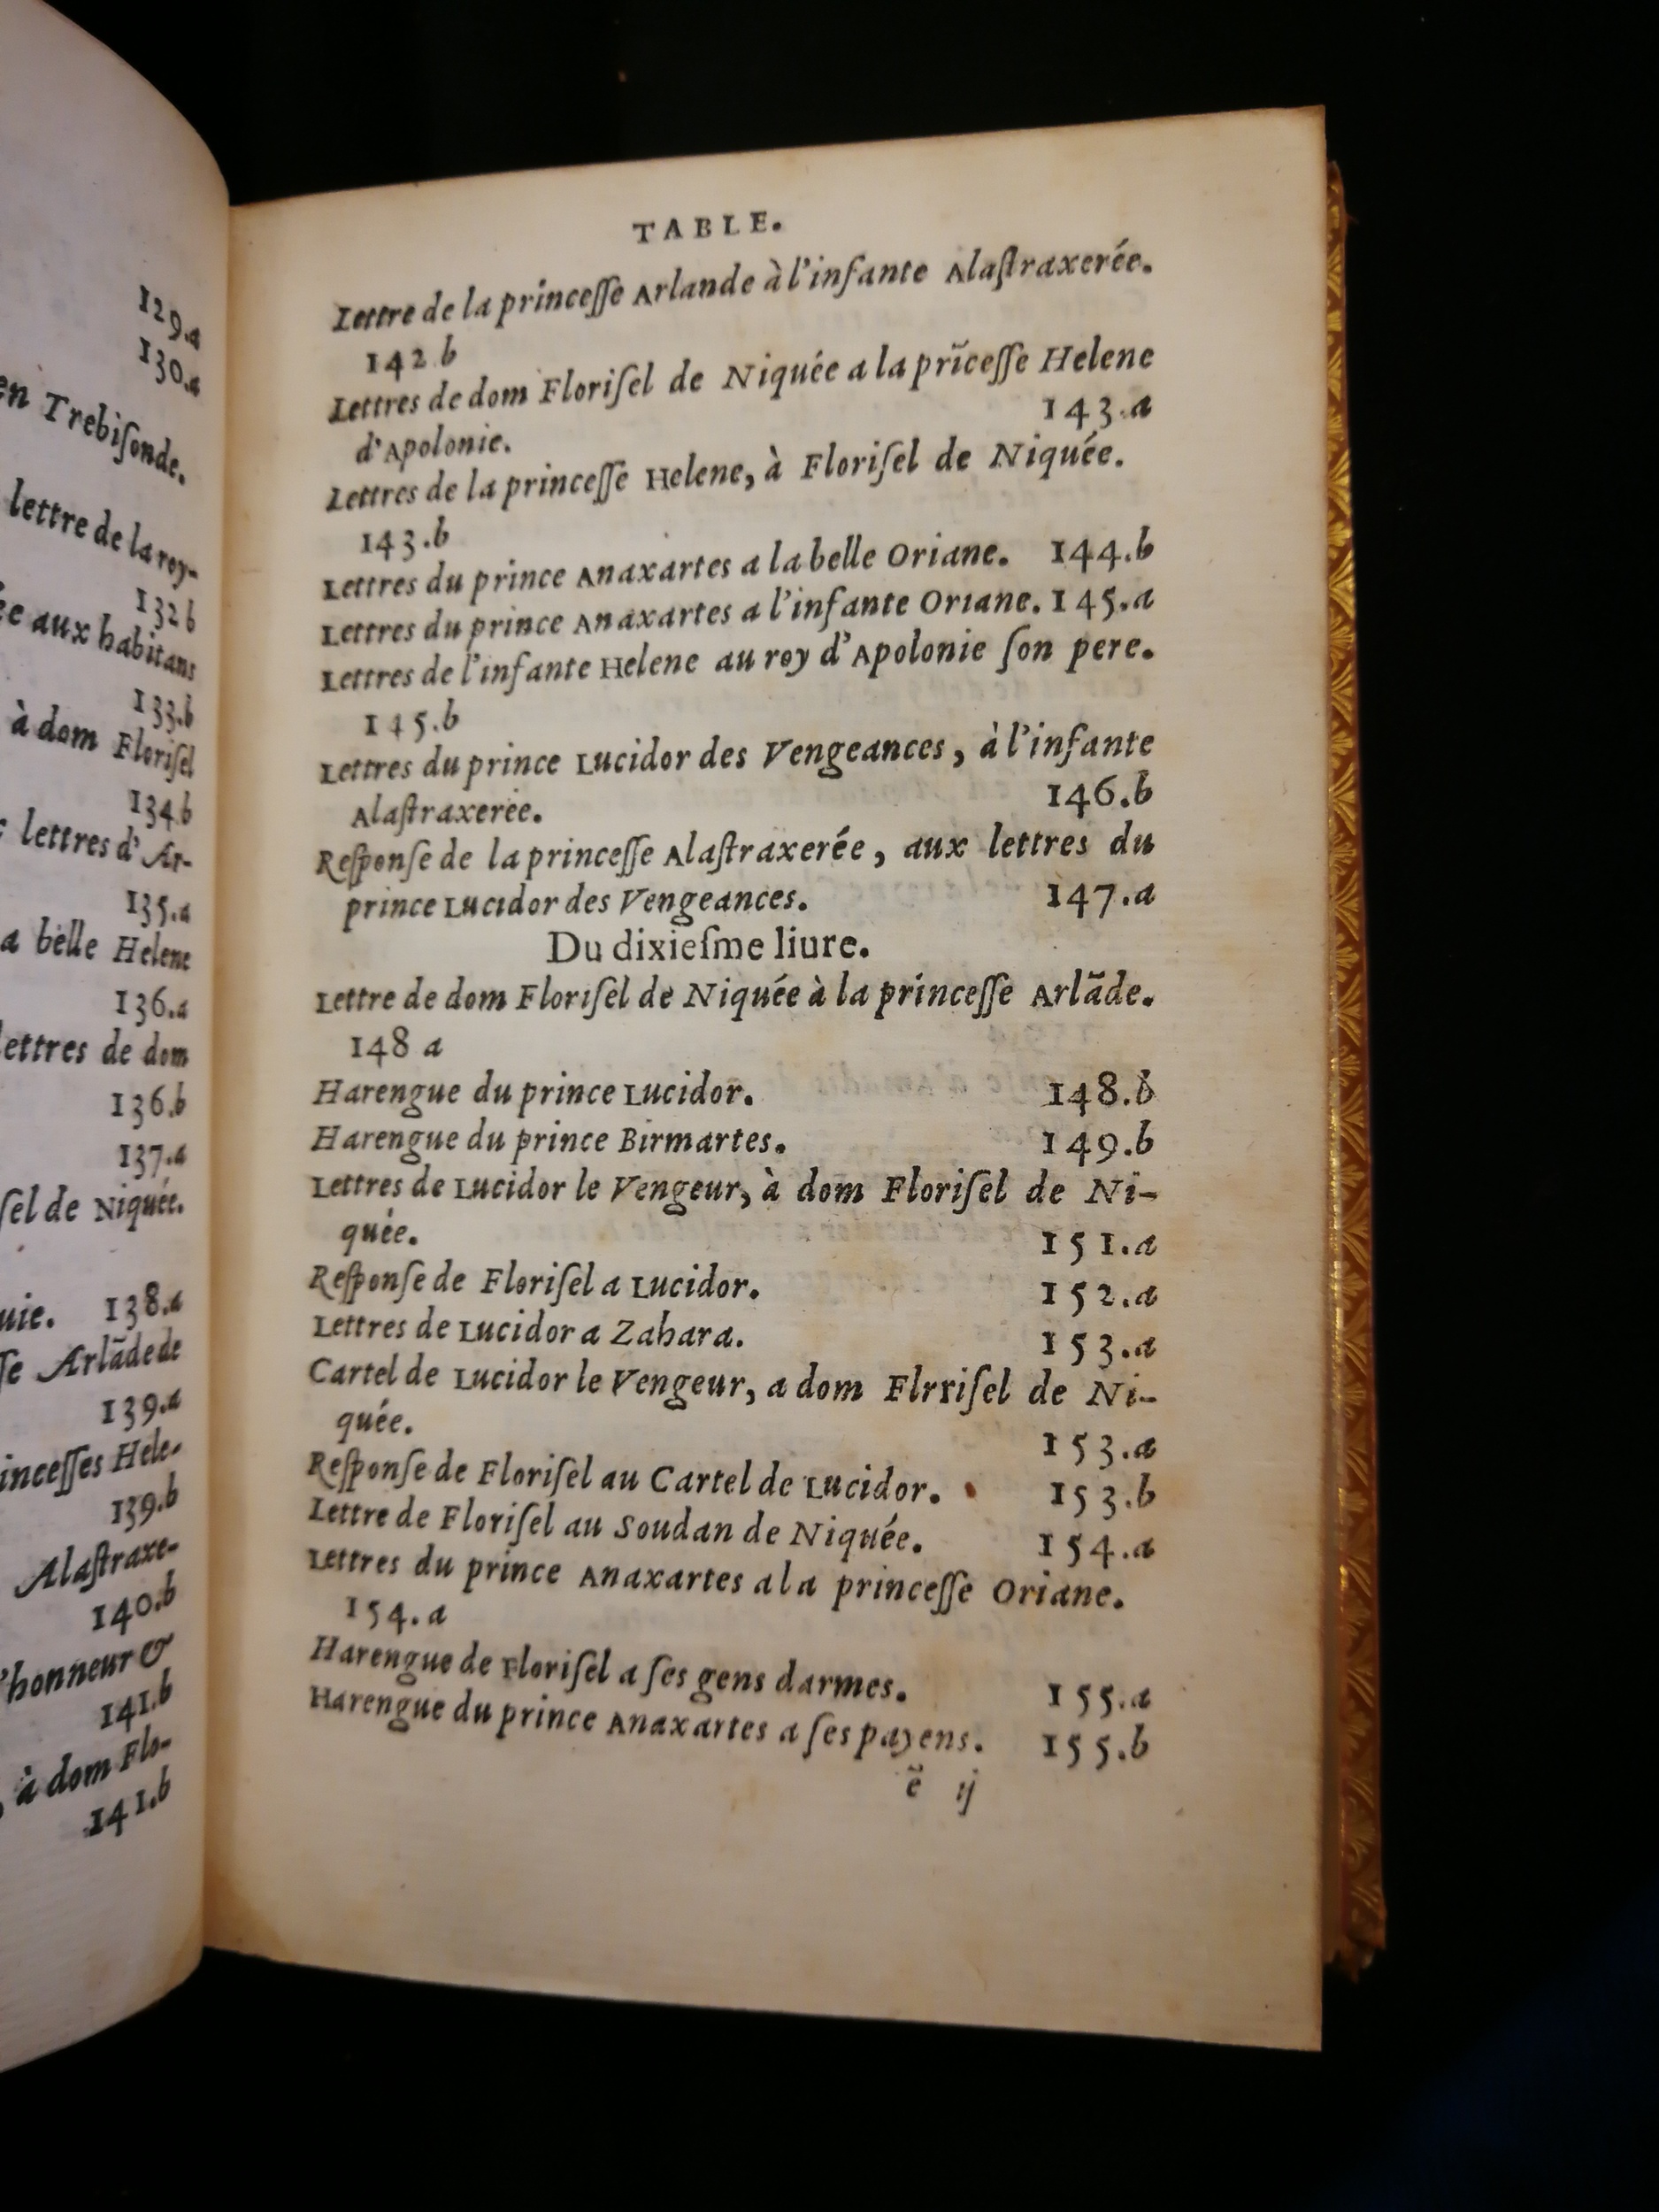 129.a
130.a
en Trebiſonde.
lettre de la roy-
132 b
ée aux habitans
133.b
à dom Floriſel
134.b
lettres d'Ar-
135.a
a belle Helene
136.a
lettres de dom
136.b
137.a
ſel de Niquée.
uie. 138.a
ſſe Arlãde de
139.a
inceſſes Hele-
139.b
Alaſtraxe-
140.b
'honneur &
141.b
, à dom Flo-
141.b
TABLE.
Lettre de la princeſſe Arlande à l'infante Alaſtraxerée.
142.b
Lettres de dom Floriſel de Niquée a la prĩceſſe Helene
d'Apolonie. 143.a
Lettres de la princeſſe Helene, à Floriſel de Niquée.
143.b
Lettres du prince Anaxartes a la belle Oriane. 144.b
Lettres du prince Anaxartes a l'infante Oriane. 145.a
Lettres de l'infante Helene au roy d'Apolonie ſon pere.
145.b
Lettres du prince Lucidor des Vengeances, à l'infante
Alaſtraxerée. 146.b
Reſponſe de la princeſſe Alaſtraxerée, aux lettres du
prince Lucidor des Vengeances. 147.a
Du dixieſme liure.
Lettre de dom Floriſel de Niquée à la princeſſe Arlãde.
148 a
Harengue du prince Lucidor. 148.b
Harengue du prince Birmartes. 149.b
Lettres de Lucidor le Vengeur, à dom Floriſel de Ni-
quée. 151.a
Reſponſe de Floriſel a Lucidor. 152.a
Lettres de Lucidor a Zahara. 153.a
Cartel de Lucidor le Vengeur, a dom Flrriſel de Ni-
quée. 153.a
Reſponſe de Floriſel au Cartel de Lucidor. 153.b
Lettre de Floriſel au Soudan de Niquée. 154.a
Lettres du prince Anaxartes a la princeſſe Oriane.
154.a
Harengue de Floriſel a ſes gens darmes. 155.a
Harengue du prince Anaxartes a ſes payens. 155.b
ẽ ij